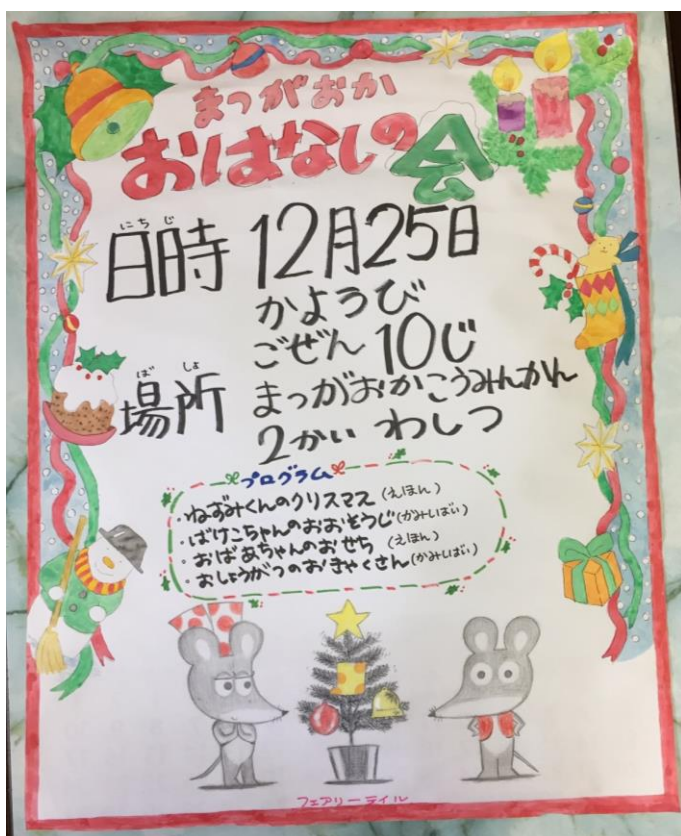 まつがおか
おはなしの会
にちじ
日時 12月25日
かようび
ごぜん 10じ
ばしょ
場所 まつがおかこうみんかん
2かい わしつ
プログラム
・ねずみくんのクリスマス(えほん)
・ばけこちゃんのおおそうじ(かみしばい)
・おばあちゃんのおせち (えほん)
・おしょうがつのおきゃくさん(かみしばい)
フェアリーテイル